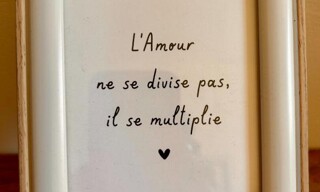 L'Amour
ne se divise pas,
il se multiplie